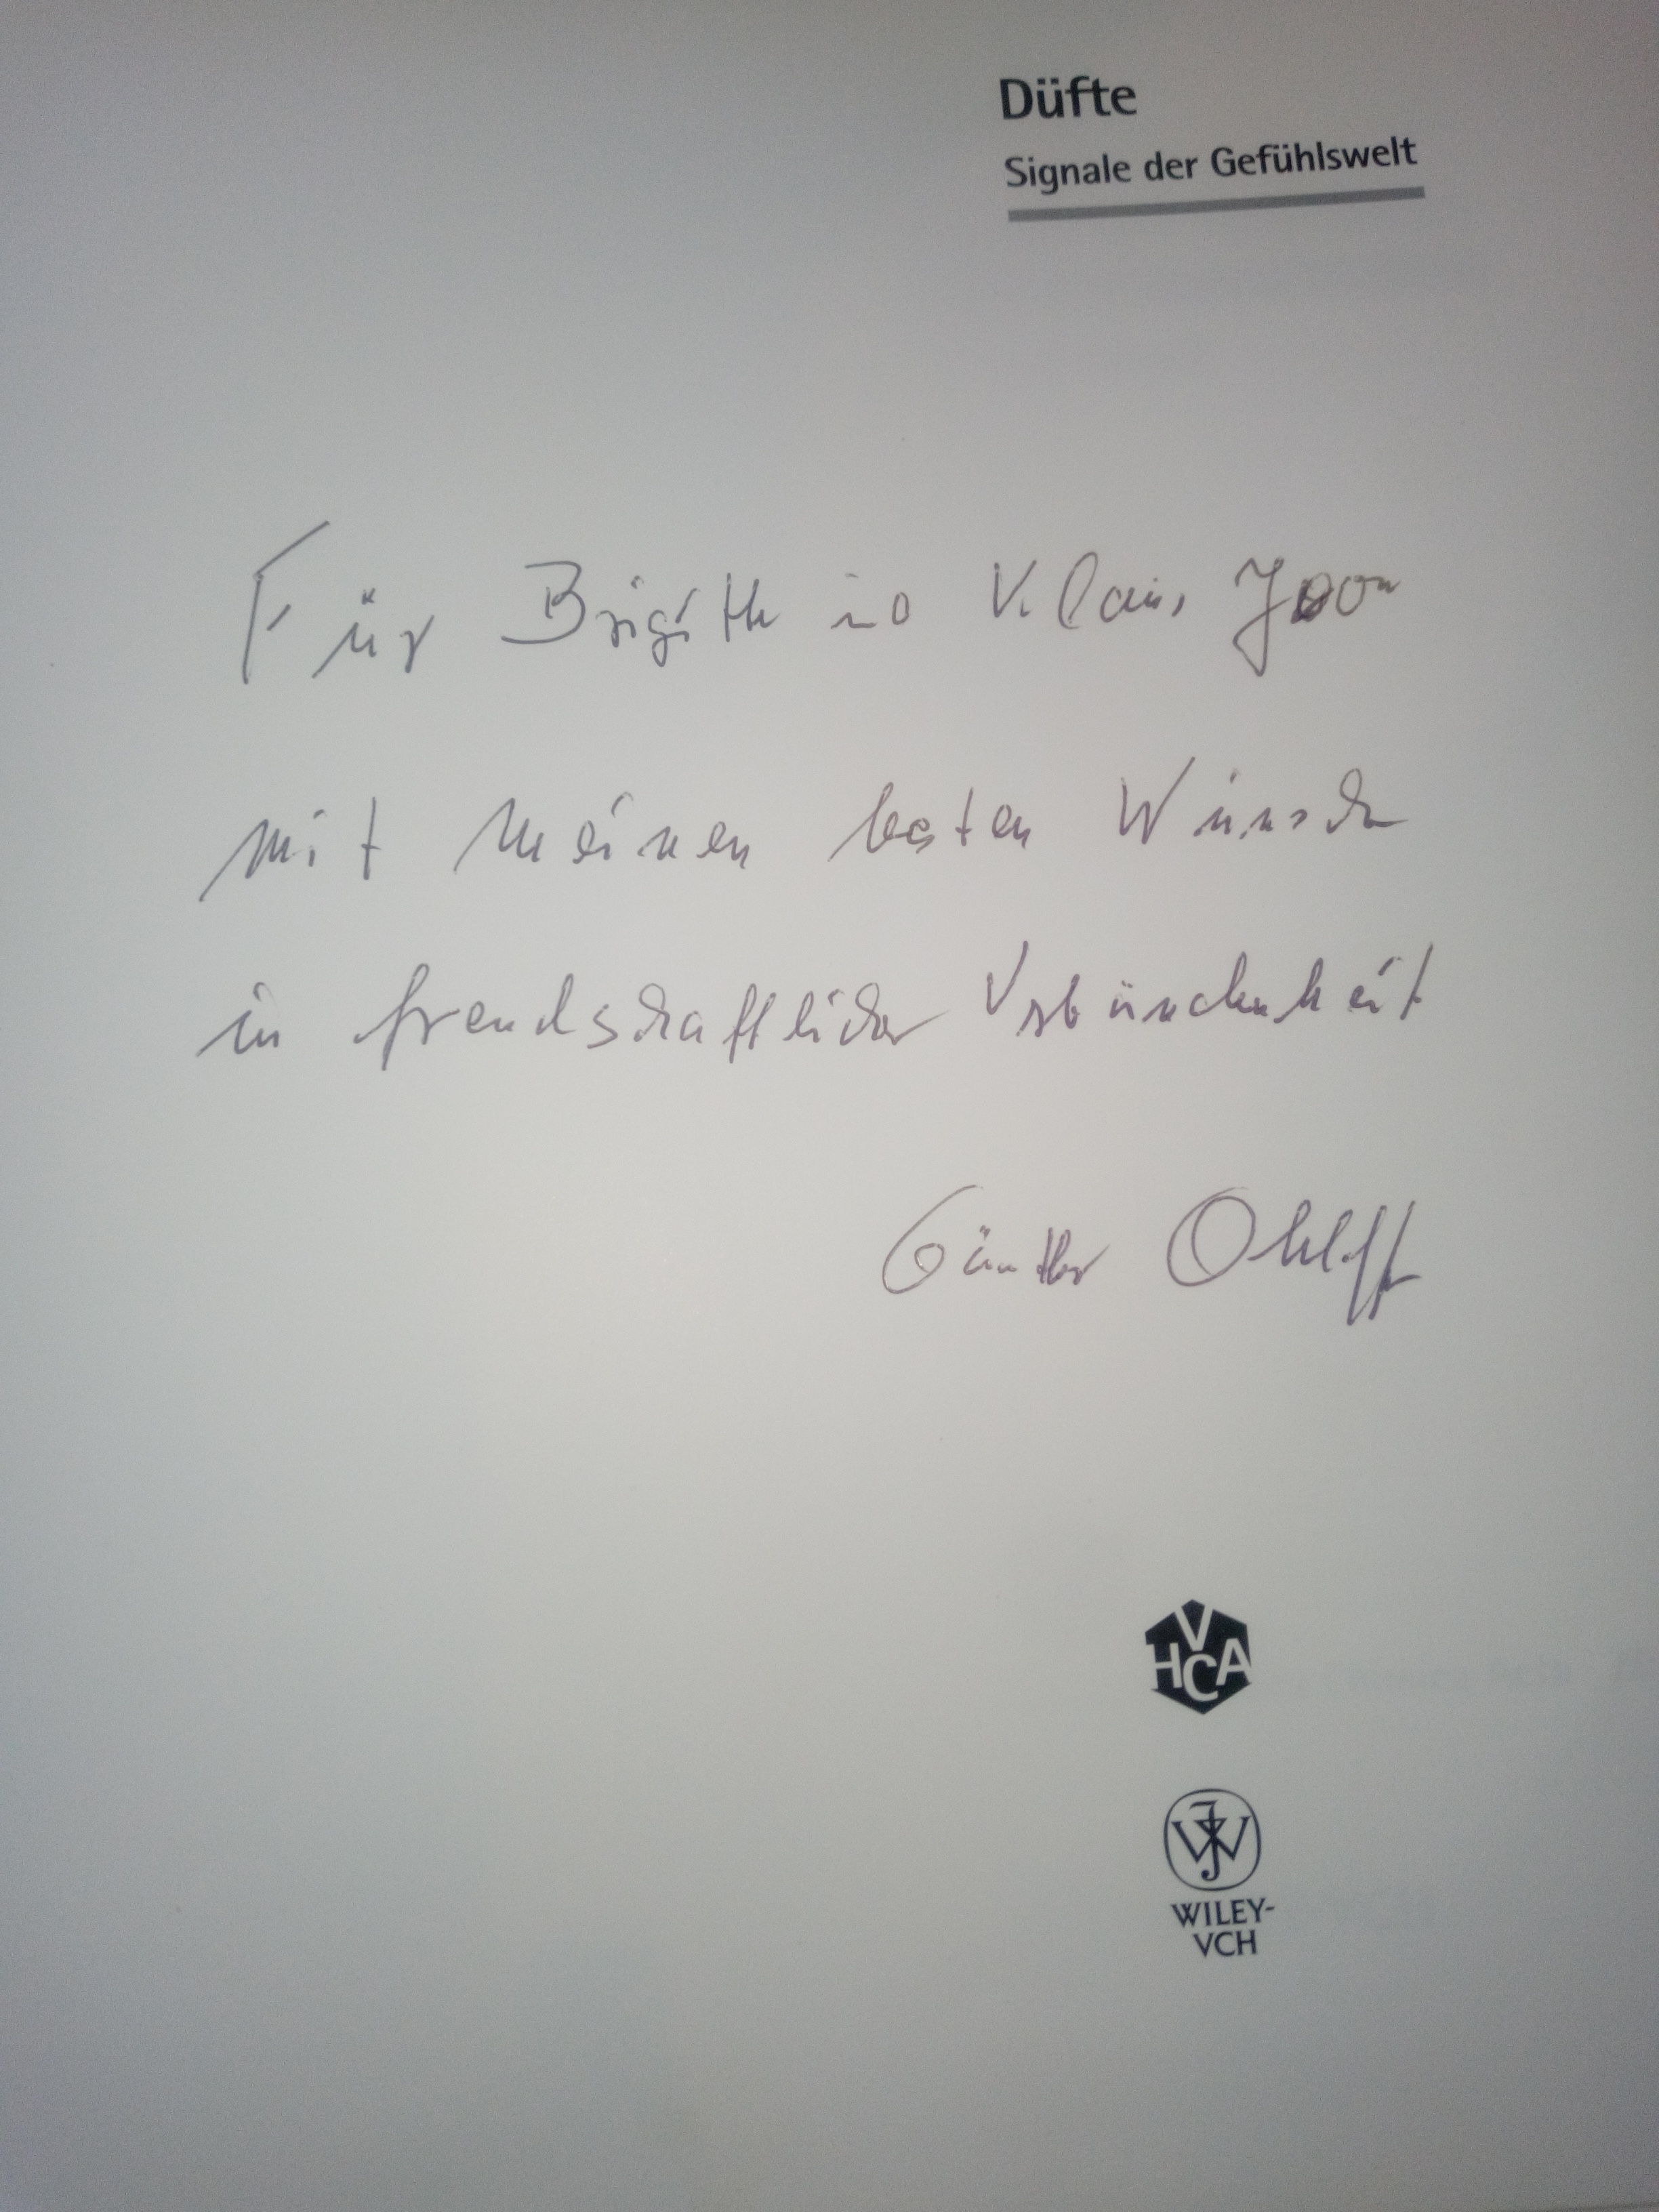 Düfte
Signale der Gefühlswelt
Für Brigitte Klaus
mit meinen besten Wünschen
in freundschaftlicher Verbundenheit
Günther Ohloff
VHCA
WILEY-
VCH